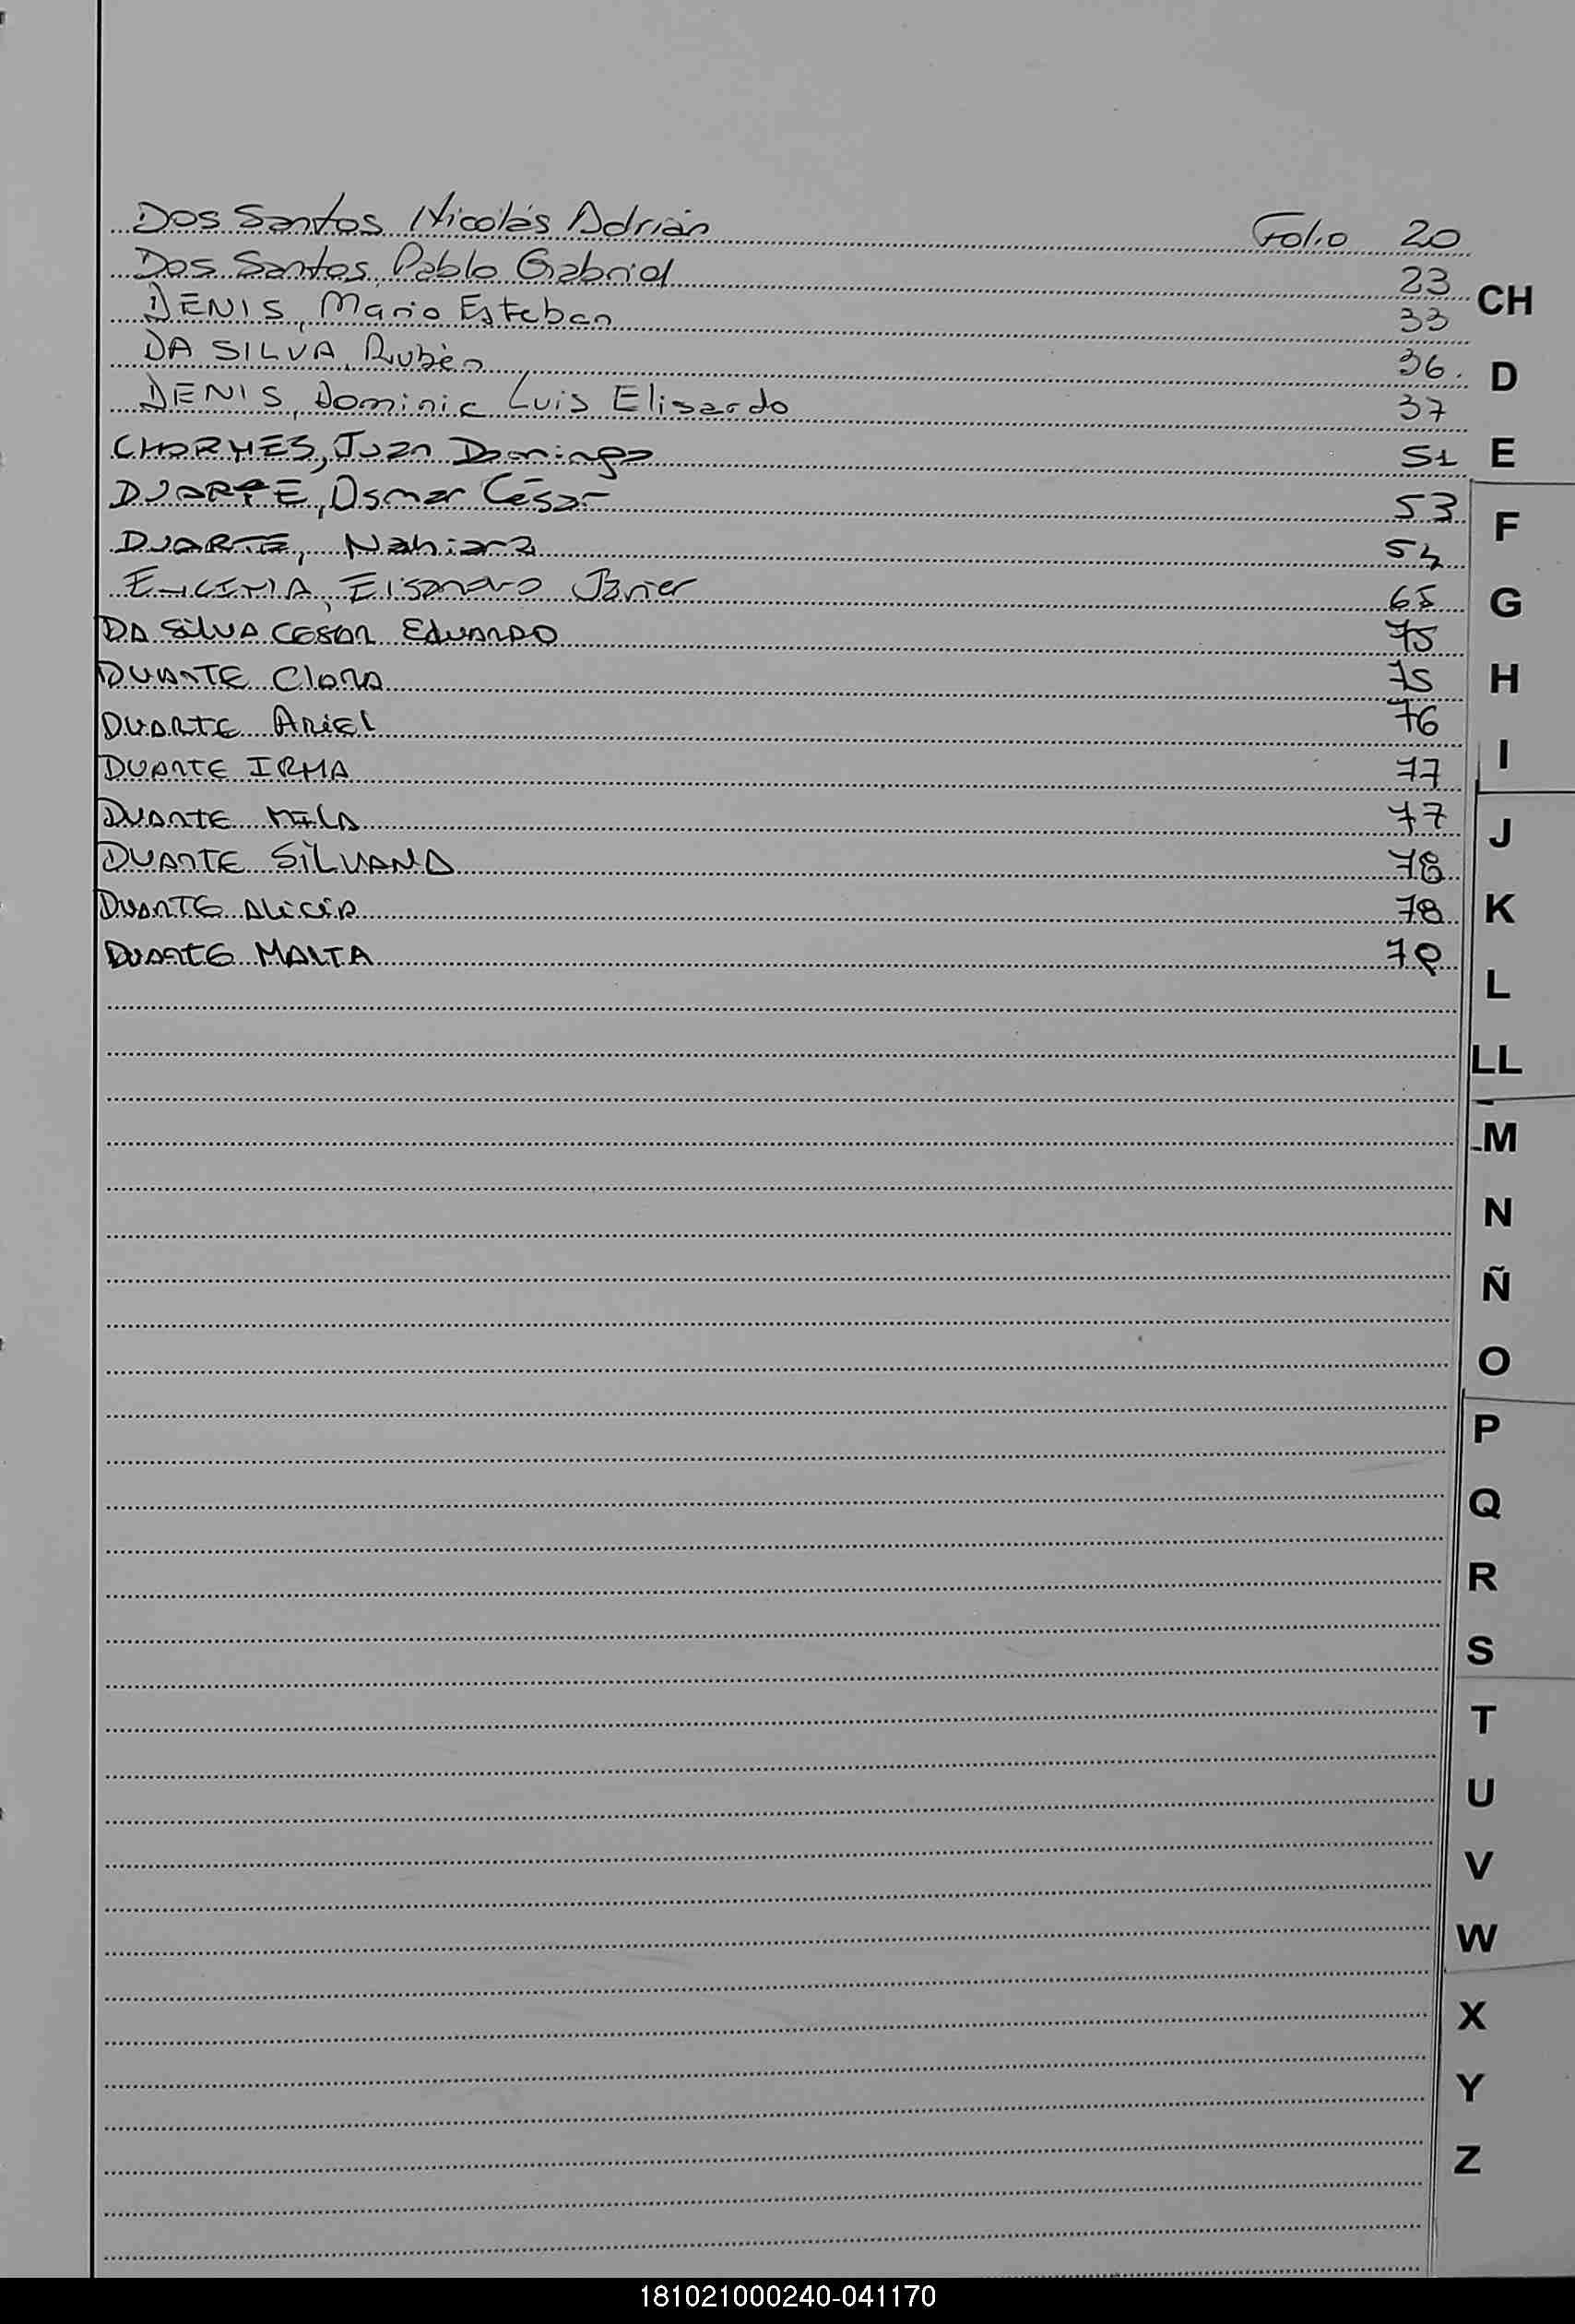 Dos Santos Nicolás Adrián Folio 20
Dos Santos, Pablo Gabriel 23
DENIS, Mario Esteban 33
DA SILVA, Rubén 36.
DENIS, Dominic Luis Elisardo 37
CHORMES, Juan Domingo 51
DUARTE, Osmar César 53
DUARTE, Nahiara 54
ENCINA, Elisandro Javier 65
DA SILVA CESAR EDUARDO 75
DUARTE Clara 75
DUARTE ARIEL 76
DUARTE IRMA 77
DUARTE MILA 77
DUARTE SILVANA 78
DUARTE ALICIA 78
DUARTE MARTA 79
CH
D
E
F
G
H
I
J
K
L
LL
M
N
Ñ
O
P
Q
R
S
T
U
V
W
X
Y
Z
181021000240-041170